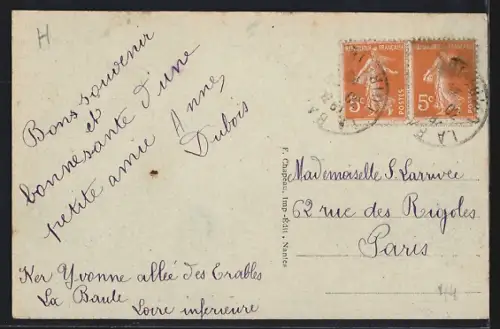 H
Bons souvenir
et
bonne santé d'une
petite amie Anne,
Dubois
REPUBLIQUE FRANÇAISE
5c POSTES
5c POSTES
LA BA
Mademoiselle S. Larrivée
62 rue des Rigoles
Paris
F. Chapeau, Imp.-Edit., Nantes
Ker Yvonne allée des Erables
La Baule
Loire inferieure